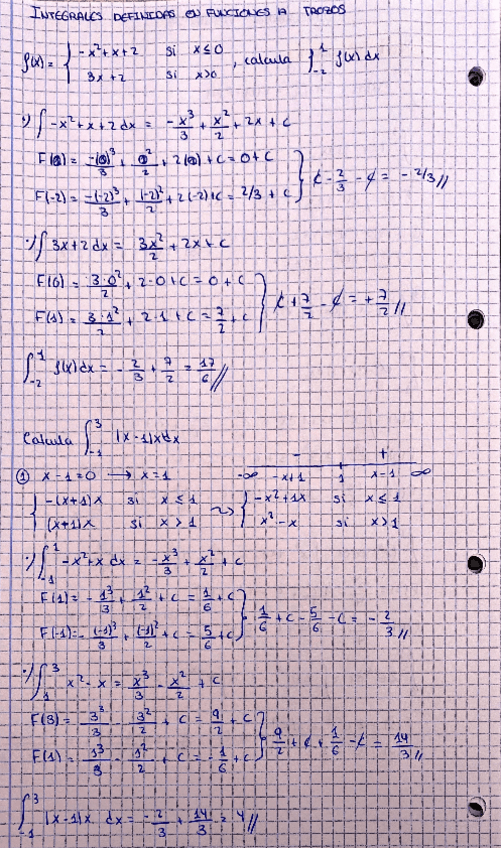 INTEGRALES DEFINIDAS EN FUNCIONES A TROZOS
f(x) = { -x²+x+2 si x≤0 , calcula ∫₋₂¹ f(x)dx
3x+2 si x>0
·) ∫ -x²+x+2 dx = -x³/3 + x²/2 + 2x + C
F(0) = -(0)³/3 + 0²/2 + 2(0) + C = 0 + C
F(-2) = -(-2)³/3 + (-2)²/2 + 2(-2) + C = 2/3 + C } C - 2/3 - C = -2/3 //
·) ∫ 3x+2 dx = 3x²/2 + 2x + C
F(0) = 3·0²/2 + 2·0 + C = 0 + C
F(1) = 3·1²/2 + 2·1 + C = 7/2 + C } C + 7/2 - C = +7/2 //
∫₋₂¹ f(x)dx = -2/3 + 7/2 = 17/6 //
Calcula ∫₋₁³ |x-1|x dx
① x-1=0 → x=1
-∞ - x+1 1 + x-1 ∞
{ -(x+1)x si x≤1 ~> { -x²+1x si x≤1
(x+1)x si x>1 x²-x si x>1
·) ∫₋₁¹ -x²+x dx = -x³/3 + x²/2 + C
F(1) = -1³/3 + 1²/2 + C = 1/6 + C
F(-1) = -(-1)³/3 + (-1)²/2 + C = 5/6 + C } 1/6 + C - 5/6 - C = -2/3 //
·) ∫₁³ x²-x = x³/3 - x²/2 + C
F(3) = 3³/3 - 3²/2 + C = 9/2 + C
F(1) = 1³/3 - 1²/2 + C = -1/6 + C } 9/2 + C + 1/6 - C = 14/3 //
∫₋₁³ |x-1|x dx = -2/3 + 14/3 = 4 //